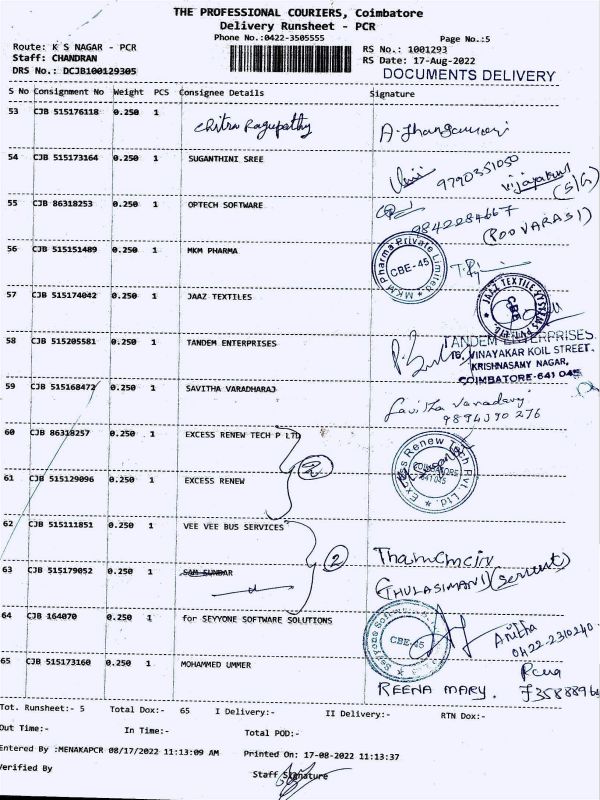 THE PROFESSIONAL COURIERS, Coimbatore
Delivery Runsheet - PCR
Phone No.:0422-3505555
Page No.:5
Route: K S NAGAR - PCR
RS No.: 1001293
Staff: CHANDRAN
RS Date: 17-Aug-2022
DRS No.: DCJB100129305
DOCUMENTS DELIVERY
S No Consignment No Weight PCS Consignee Details Signature
53 CJB 515176118 0.250 1 Chitra Ragupathy
54 CJB 515173164 0.250 1 SUGANTHINI SREE
9790351050
vijayakumar
(S/G)
55 CJB 86318253 0.250 1 OPTECH SOFTWARE
9842284667
(POOVARASI)
56 CJB 515151489 0.250 1 MKM PHARMA
MKM Pharma Private Limited
CBE-45
57 CJB 515174042 0.250 1 JAAZ TEXTILES
JAAZ TEXTILE SYSTEMS PVT. LTD.
CBE
58 CJB 515205581 0.250 1 TANDEM ENTERPRISES
TANDEM ENTERPRISES.
16, VINAYAKAR KOIL STREET.
KRISHNASAMY NAGAR,
COIMBATORE-641 045
59 CJB 515168472 0.250 1 SAVITHA VARADHARAJ
Savitha Varadaraj
9894390276
60 CJB 86318257 0.250 1 EXCESS RENEW TECH P LTD
2
Excess Renew Tech Pvt. Ltd.
61 CJB 515129096 0.250 1 EXCESS RENEW
62 CJB 515111851 0.250 1 VEE VEE BUS SERVICES
2
63 CJB 515179052 0.250 1 SAM SUNDAR
THULASIMANI (servent)
64 CJB 164070 0.250 1 for SEYYONE SOFTWARE SOLUTIONS
CBE-45
Anitha
0422-2310240
65 CJB 515173160 0.250 1 MOHAMMED UMMER
REENA MARY.
Tot. Runsheet:- 5 Total Dox:- 65 I Delivery:- II Delivery:- RTN Dox:-
Out Time:- In Time:- Total POD:-
Entered By :MENAKAPCR 08/17/2022 11:13:09 AM Printed On: 17-08-2022 11:13:37
Verified By
Staff Signature